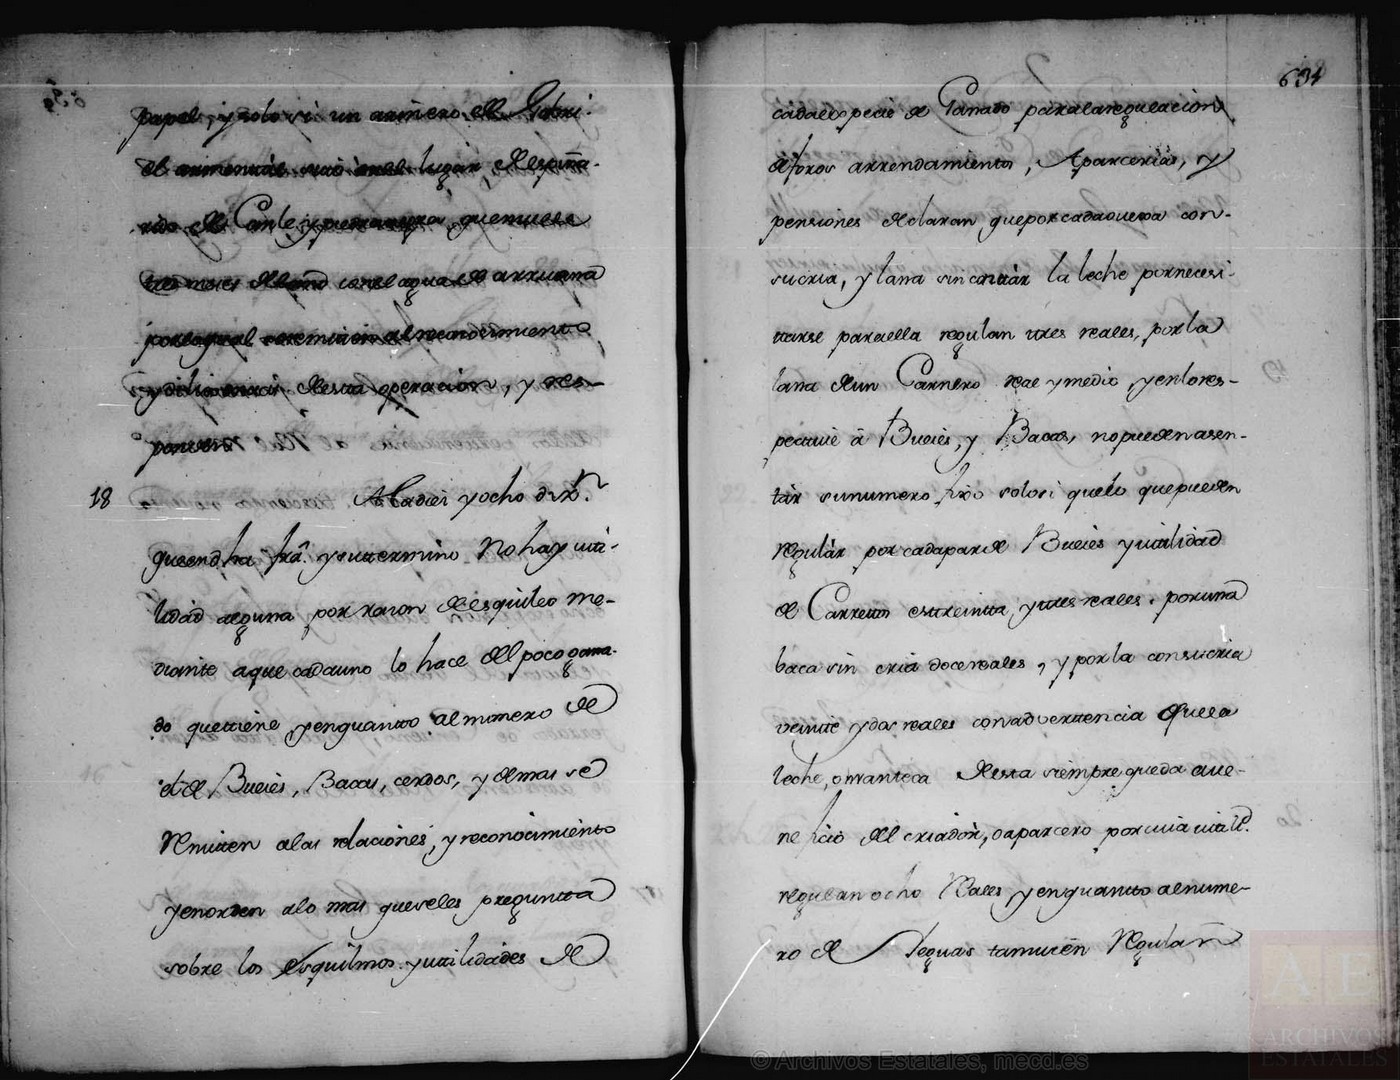 papel, y solo si un molinero de Gabri-
el armental sito en el lugar de espiña-
rido de Canle y piedra negra, que muele
tres meses del año con el agua de arruana
por lo qual se remiten al reconocimiento
y dilixencias de esta operacion, y res-
ponden
18 A la diez y ocho dixn.
que en dha fra. y su termino No hay uti-
lidad alguna por razon de esquileo me-
diante a que cada uno lo hace del poco gana-
do que tiene, y en quanto al numero de
el de Bueies, Bacas, cerdos, y demas se
Remiten a las relaciones, y reconocimiento
y en orden a lo mas que se les pregunta
sobre los esquilmos y utilidades de
634
cada especie de Ganado para la regulacion
de foros arrendamientos, Aparcerias, y
pensiones declaran que por cada oveja con
su cria, y lana sin contar la leche por necesi-
tarse para ella regulan tres reales, por la
lana de un Carnero real y medio, y en lo res-
pectivo â Bueies, y Bacas, no pueden asen-
tar su numero fixo solo si que lo que pueden
Regular por cada par de Bueies y utilidad
de Carreto es treinta, y tres reales, por una
baca sin cria doce reales, y por la con su cria
veinte y dos reales con advertencia que la
leche, o manteca de esta siempre queda a ve-
neficio del criador, o aparcero por cuia utild.
regulan ocho Reales y en quanto al nume-
ro de Yeguas tamvien Regulan
© Archivos Estatales, mecd.es
AE
ARCHIVOS
ESTATALES